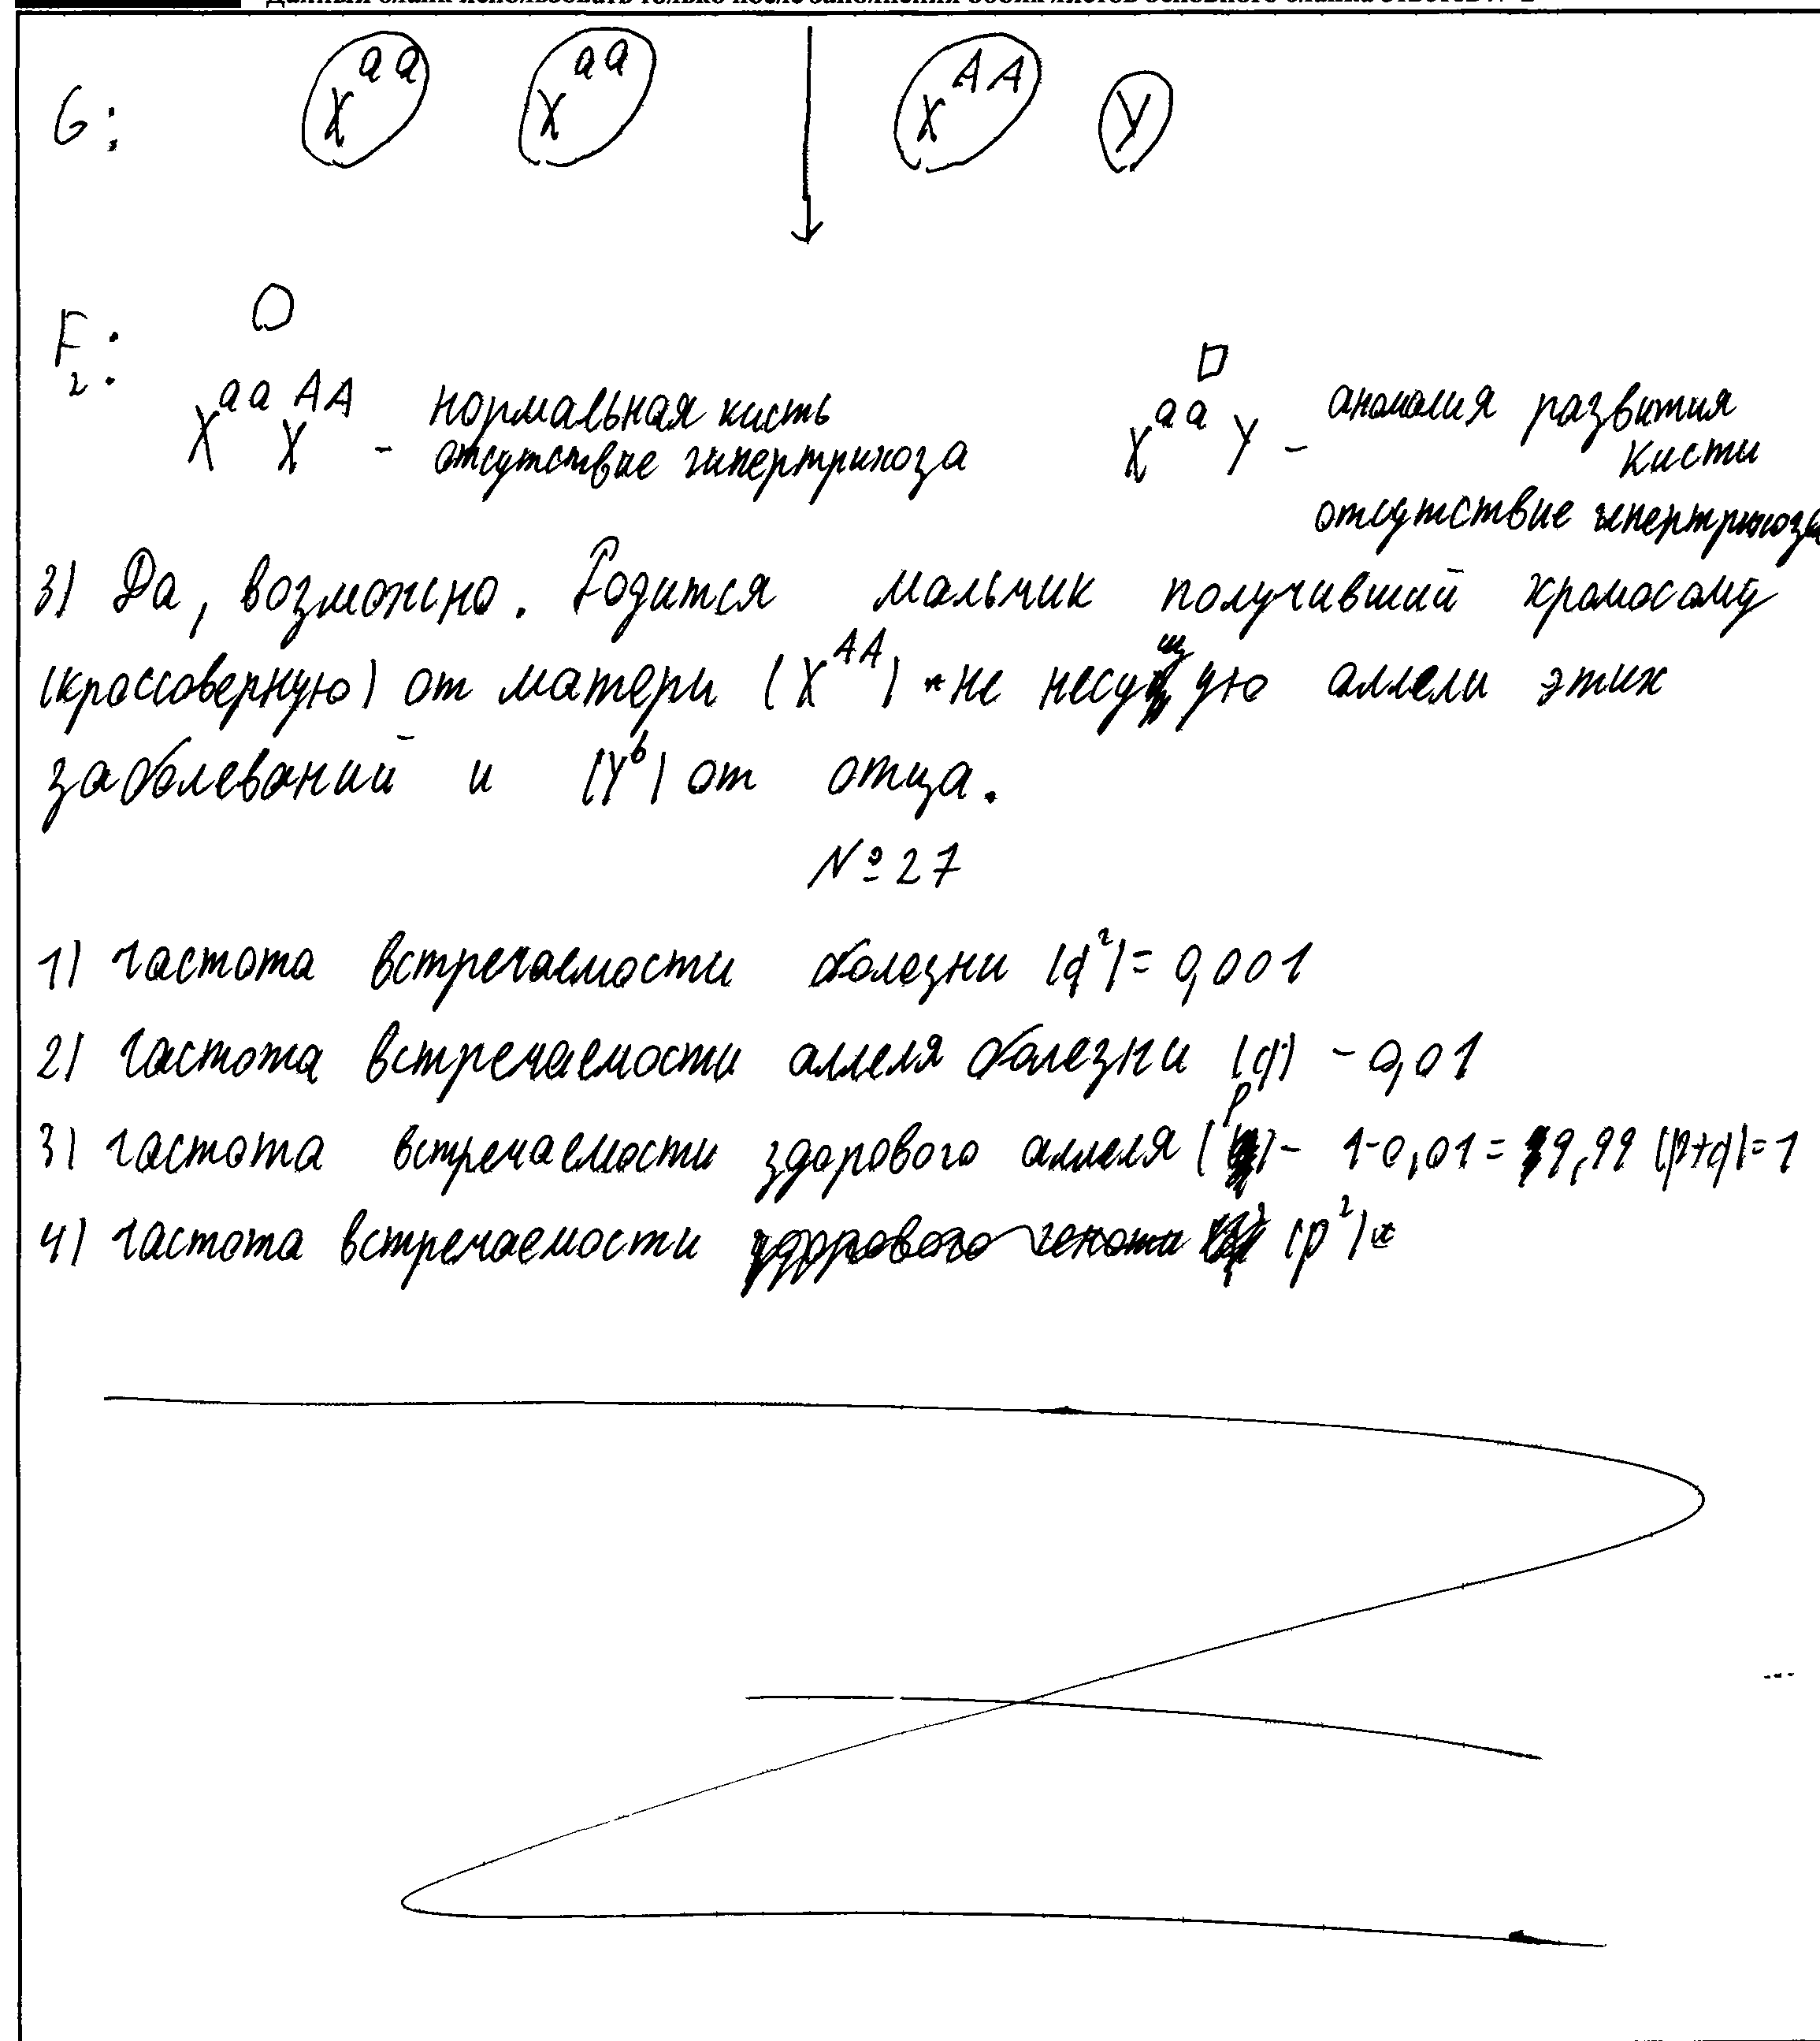 G: X^aa X^aa X^AA Y
F2:
X^aa X^AA - нормальная кисть отсутствие гипертрихоза
X^aa Y - аномалия развития кисти отсутствие гипертрихоза
3) Да, возможно. Родится мальчик получивший хромосому
(кроссоверную) от матери (X^AA) не несущую аллели этих
заболеваний и (Y^b) от отца.
№27
1) частота встречаемости болезни (q²) = 0,001
2) частота встречаемости аллеля болезни (q) - 0,01
3) частота встречаемости здорового аллеля (p) - 1-0,01 = 9,99 (p+q)=1
4) частота встречаемости (p²)